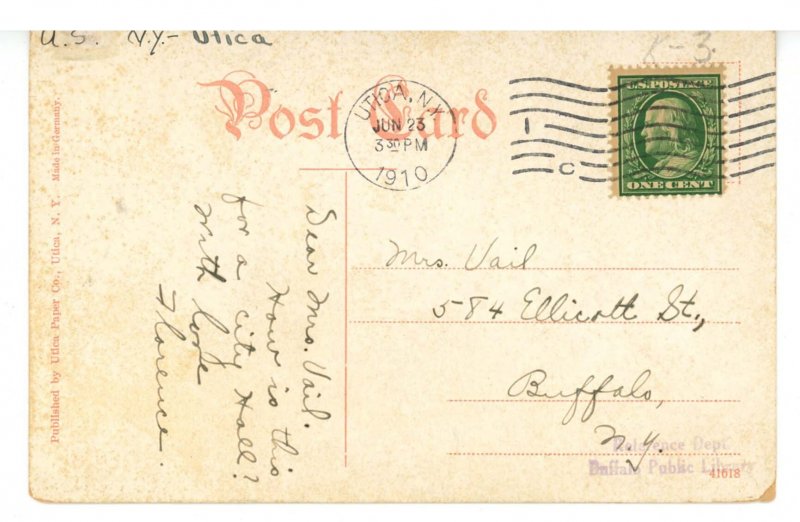 U.S. N.Y.- Utica
K-3
Post Card
UTICA, N.Y.
JUN 23
3 30 PM
1910
1
C
U.S. POSTAGE
ONE CENT
Published by Utica Paper Co., Utica, N. Y. Made in Germany.
Dear Mrs. Vail.
How is this
for a city Hall?
With love
Florence.
Mrs. Vail
584 Ellicott St.,
Buffalo,
N.Y.
Reference Dept.
Buffalo Public Library
41618